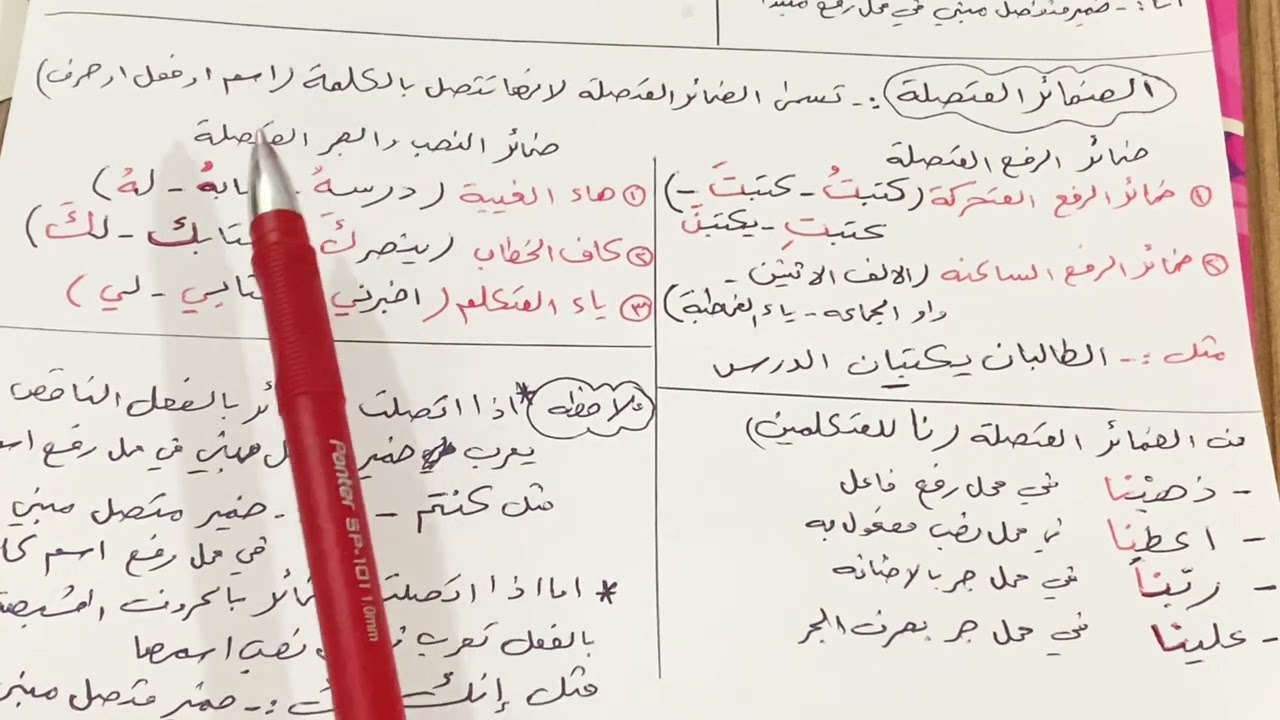 ضمير متصل مبني في محل رفع مبتدأ
الضمائر المتصلة :- تسمى الضمائر المتصلة لانها تتصل بالكلمة (اسم او فعل او حرف)
ضمائر الرفع المتصلة
① ضمائر الرفع المتحركة (كتبتُ - كتبتَ -
كتبتِ - يكتبنَ)
② ضمائر الرفع الساكنه (الالف الاثنين -
واو الجماعه - ياء المخاطبة)
مثل :- الطالبان يكتبان الدرس
ضمائر النصب والجر المتصلة
① هاء الغيبة (درسهُ - ابهُ - لهُ)
② كاف الخطاب (ينصركَ تابك - لكَ)
③ ياء المتكلم (اخبرني تابي - لي)
من الضمائر المتصلة (نا للمتكلمين)
- ذهبْنا في محل رفع فاعل
- اعطِنا في محل نصب مفعول به
- ربّنا في محل جر بالاضافه
- علينا في محل جر بحرف الجر
ملاحظه * اذا اتصلت ئر بالفعل الناقص
يعرب ضمير ل مبني في محل رفع اسـ
مثل كنتم - - ضمير متصل مبني
في محل رفع اسم كا
* اما اذا اتصلت ئر بالحروف المشبهة
بالفعل تعرب نصب اسمها
مثل إنك :- ضمير متصل مبني
Ponter SP.101 1.0mm